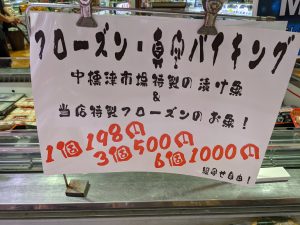 フローズン・真空バイキング
中標津市場特製の漬け魚
&
当店特製フローズンのお魚!
1個198円
3個500円
6個1000円
組合せ自由!